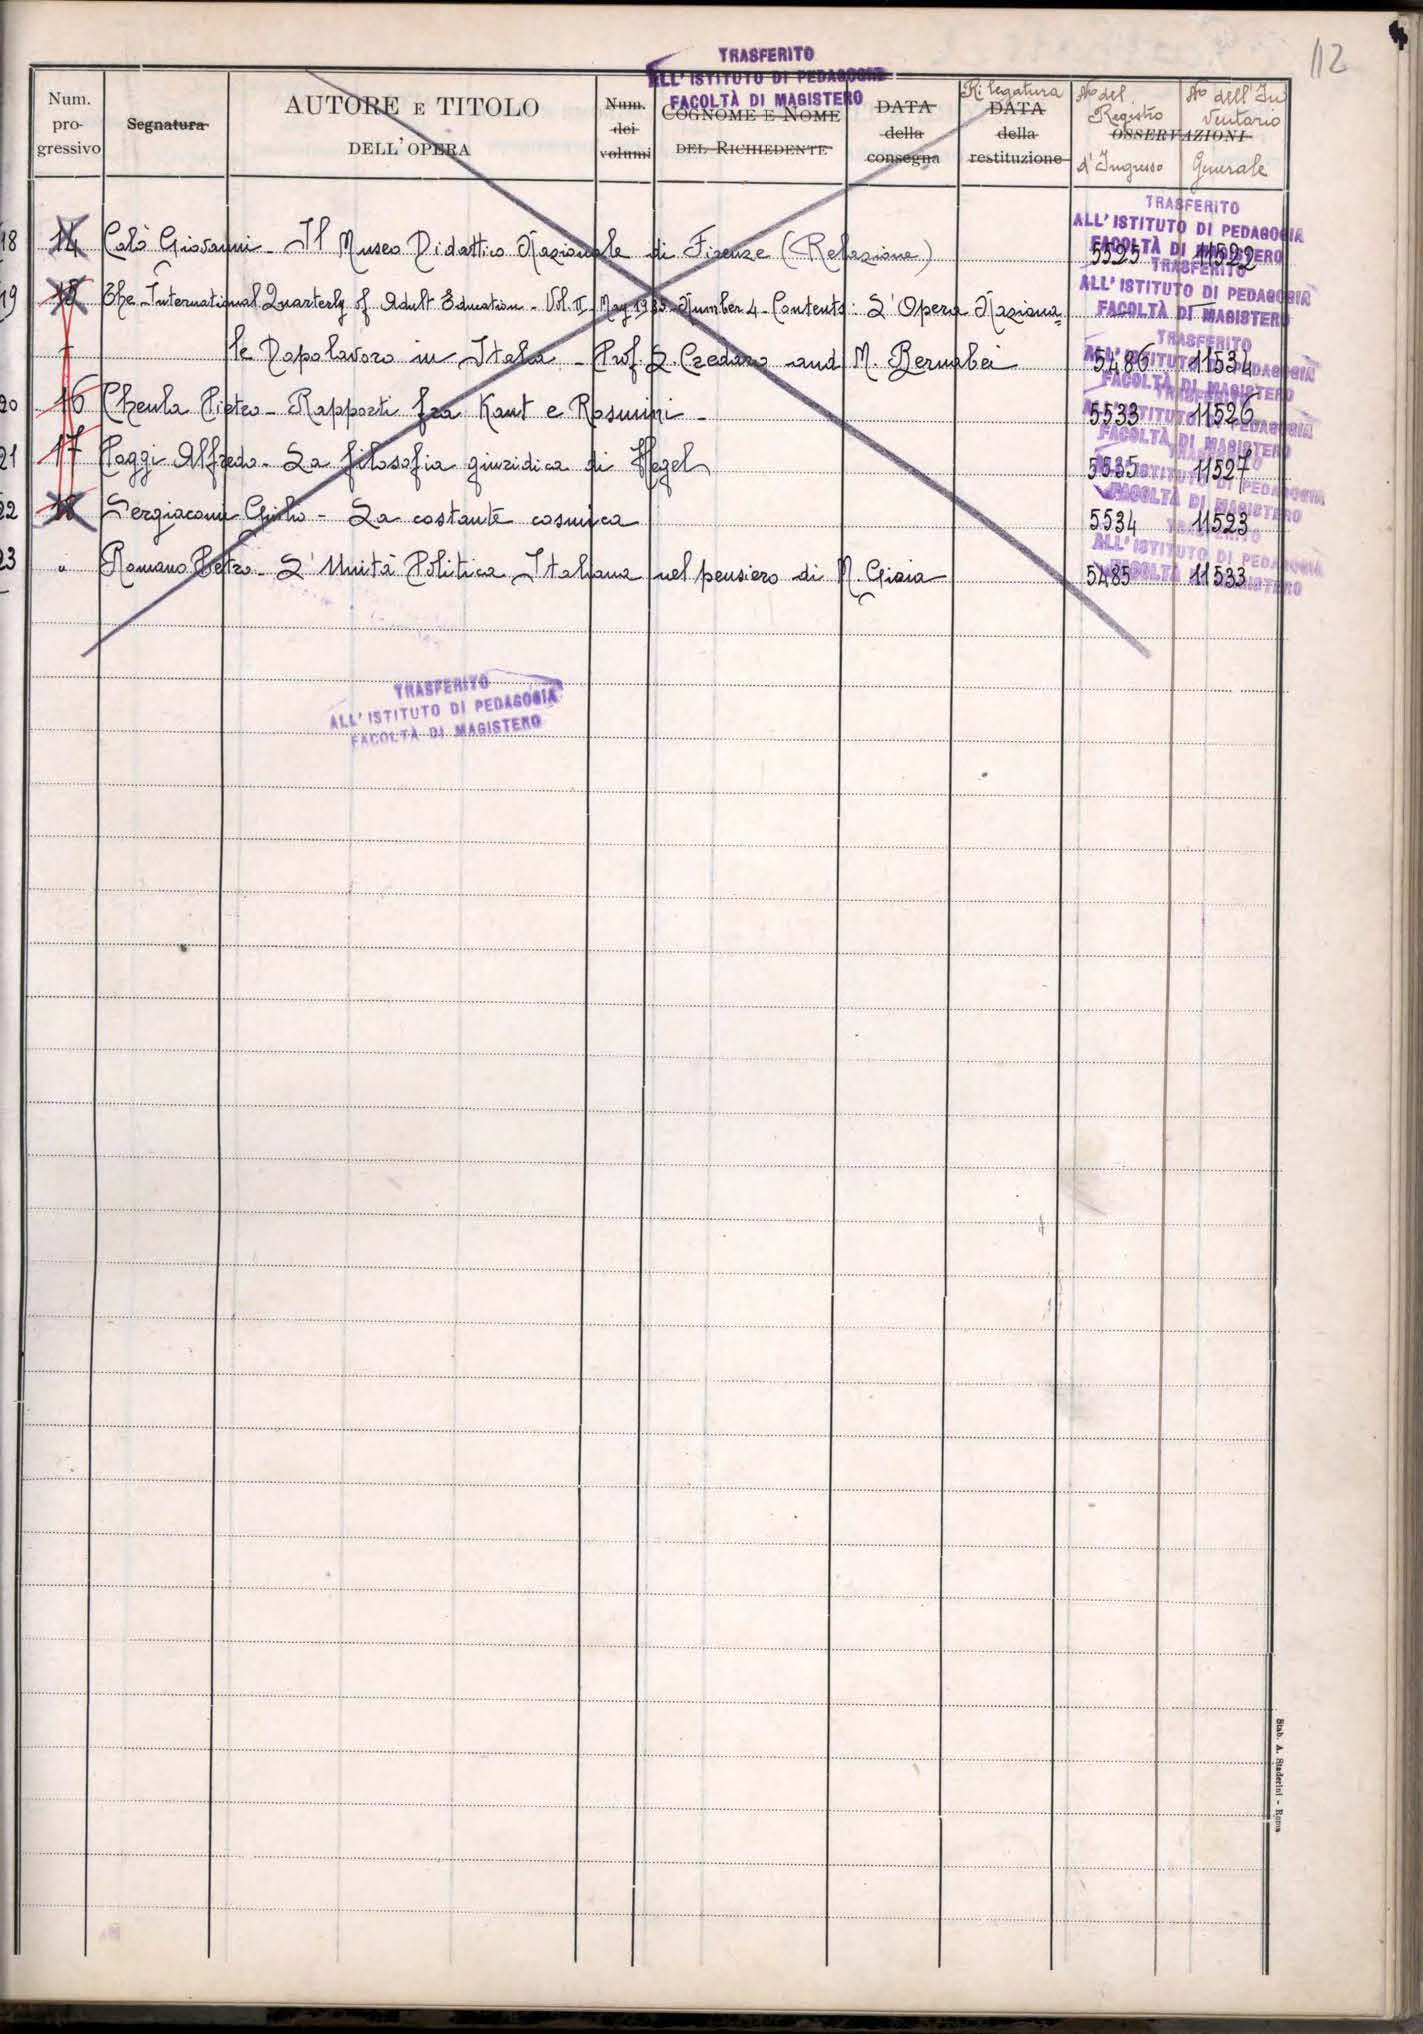 112
TRASFERITO
ALL'ISTITUTO DI PEDAGOGIA
FACOLTÀ DI MAGISTERO
Num. progressivo
Segnatura
AUTORE E TITOLO
DELL'OPERA
Num. dei volumi
COGNOME E NOME
DEL RICHIEDENTE
DATA della consegna
Rilegatura
DATA della restituzione
No del Registro d'Ingresso
No dell'Inventario Generale
OSSERVAZIONI
TRASFERITO
ALL'ISTITUTO DI PEDAGOGIA
FACOLTÀ DI MAGISTERO
18 14 Calò Giovanni - Il Museo Didattico Nazionale di Firenze (Relazione) 5525 11522
TRASFERITO
ALL'ISTITUTO DI PEDAGOGIA
FACOLTÀ DI MAGISTERO
19 15 The International Quarterly of Adult Education - Vol. II - May 1935 - Number 4 - Contents: L'Opera Naziona=
le Dopolavoro in Italia - Prof. L. Credaro and M. Bernabei 5486 11534
TRASFERITO
ALL'ISTITUTO DI PEDAGOGIA
FACOLTÀ DI MAGISTERO
20 16 Cheula Pietro - Rapporti fra Kant e Rosmini - 5533 11526
TRASFERITO
ALL'ISTITUTO DI PEDAGOGIA
FACOLTÀ DI MAGISTERO
21 17 Poggi Alfredo - La filosofia giuridica di Hegel 5535 11527
ISTITUTO DI PEDAGOGIA
FACOLTÀ DI MAGISTERO
22 18 Sergiacomi Giulio - La costante cosmica 5534 11523
TRASFERITO
ALL'ISTITUTO DI PEDAGOGIA
FACOLTÀ DI MAGISTERO
23 " Romano Pietro - L'Unità Politica Italiana nel pensiero di M. Gioia 5485 11533
TRASFERITO
ALL'ISTITUTO DI PEDAGOGIA
FACOLTÀ DI MAGISTERO
Stab. A. Staderini - Roma